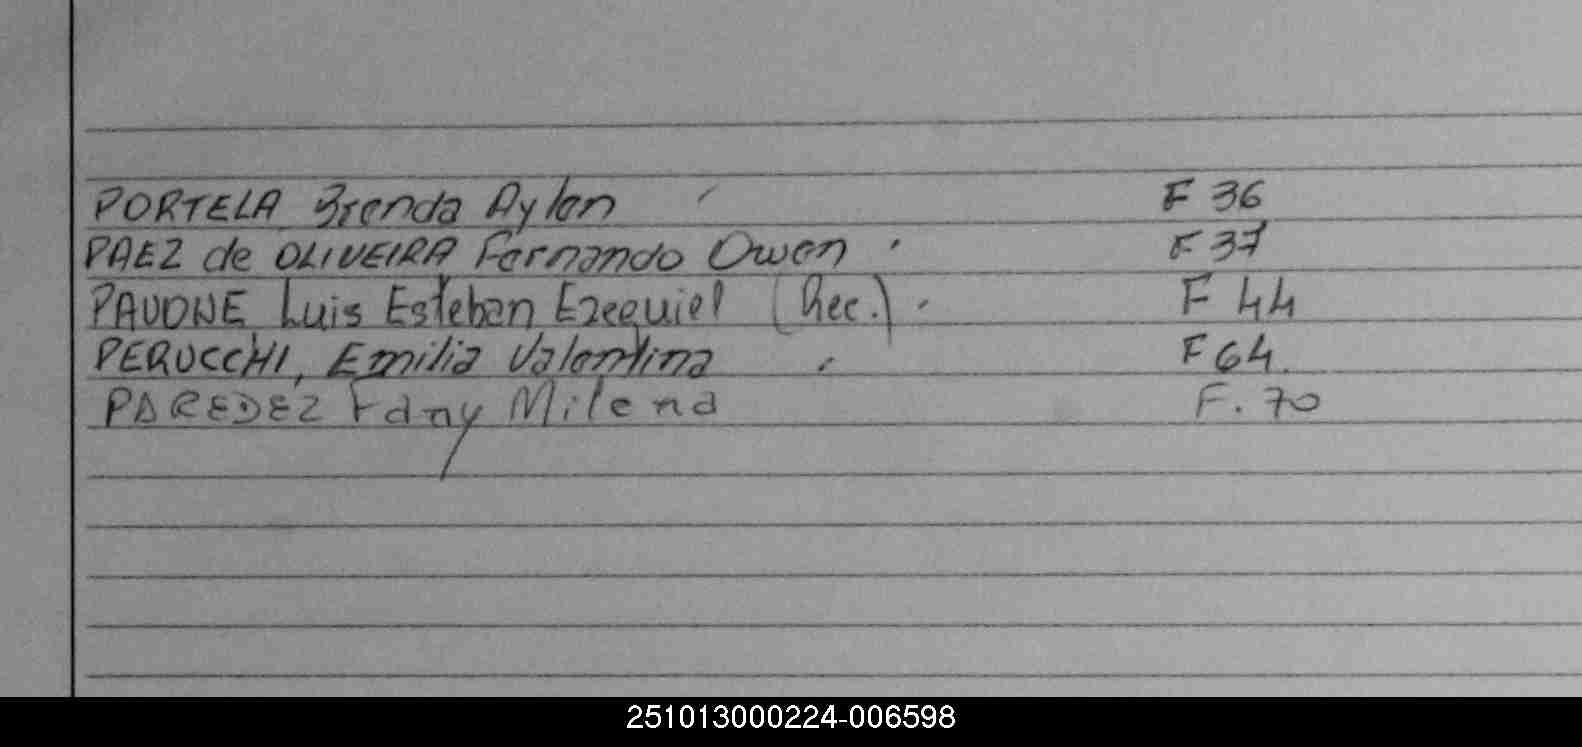 PORTELA Brenda Aylen F 36
PAEZ de OLIVEIRA Fernando Owen . F 37
PAVONE Luis Esteban Ezequiel (Rec.) . F 44
PERUCCHI, Emilia Valentina . F 64.
PAREDEZ Fany Milena F. 70
251013000224-006598